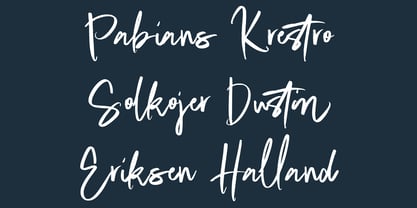 Pabians Krestro
Solkojer Dustin
Eriksen Halland